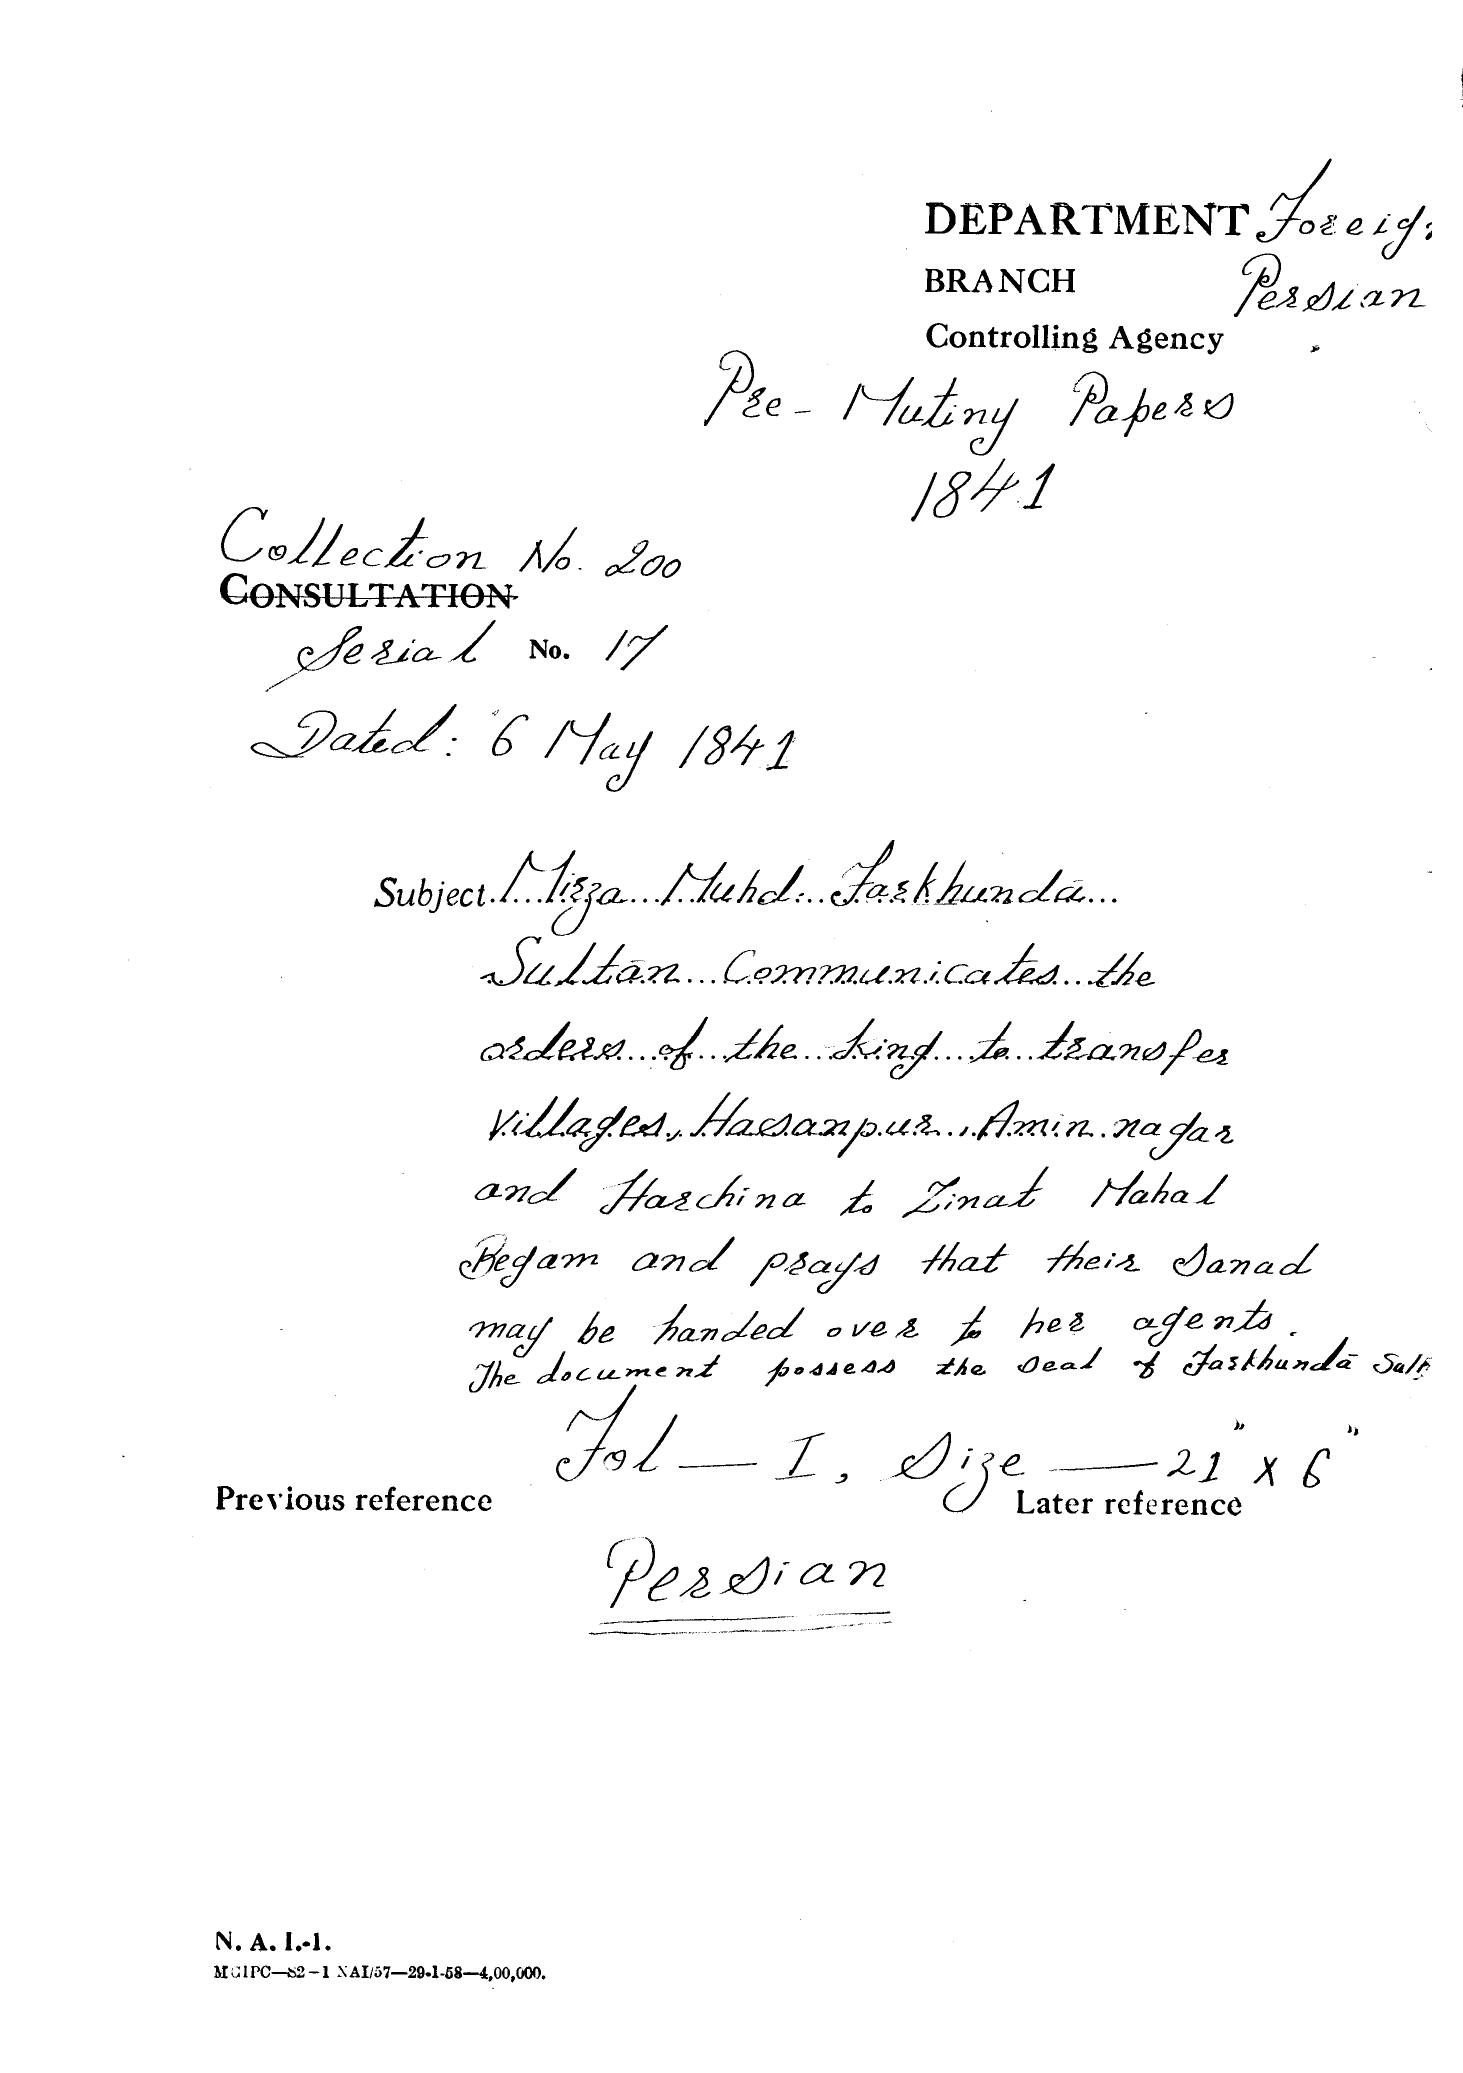 DEPARTMENT Foreig
BRANCH Persian
Controlling Agency
Pre - Mutiny Papers
1841
Collection No. 200
CONSULTATION
Serial No. 17
Dated: 6 May 1841
Subject. Mirza Muhd. Farkhundā
Sultān Communicates the
orders of the king to transfer
villages, Hassanpur, Amin nagar
and Harchina to Zinat Mahal
Begam and prays that their Sanad
may be handed over to her agents.
The document possess the seal of Farkhundā Sult
Fol — I, Size — 21" x 6"
Previous reference Later reference
Persian
N. A. I.-1.
MGIPC—S2—1 NAI/57—29-1-58—4,00,000.